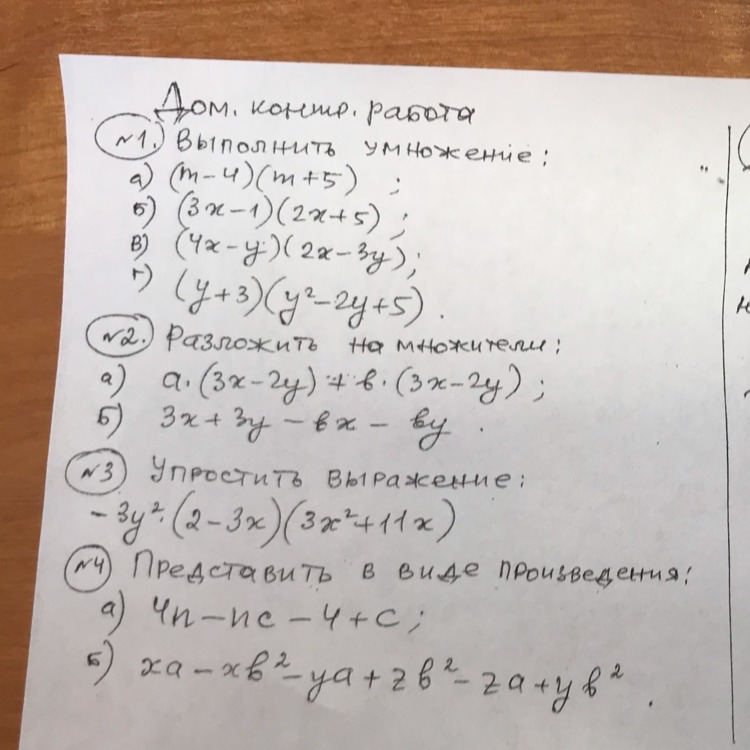 Дом. контр. работа
№1. Выполнить умножение:
а) (m-4)(m+5) ;
б) (3x-1)(2x+5) ;
в) (4x-y)(2x-3y);
г) (y+3)(y²-2y+5) .
№2. Разложить на множители:
а) a·(3x-2y)+b·(3x-2y) ;
б) 3x+3y-bx-by .
№3 Упростить выражение:
-3y²·(2-3x)(3x²+11x)
№4 Представить в виде произведения:
а) 4n-nc-4+c;
б) xa-xb²-ya+zb²-za+yb² .